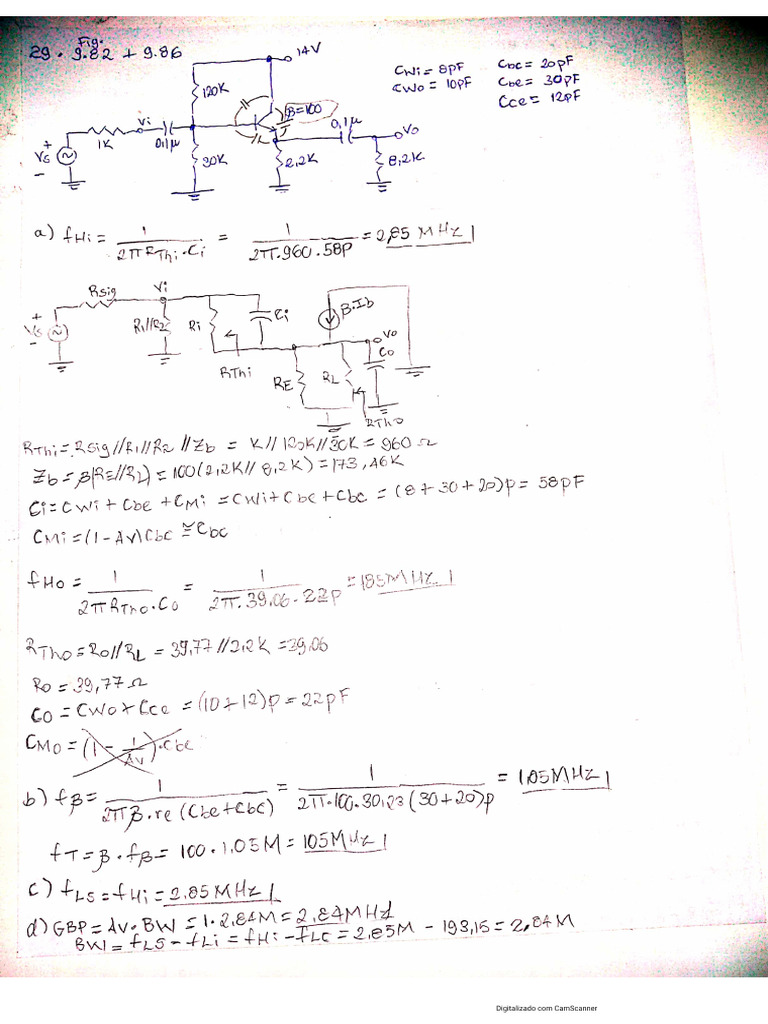 29. Fig. 9.82 + 9.86
14V
CWi = 8pF Cbc = 20pF
CWo = 10pF Cbe = 30pF
Cce = 12pF
120K
β=100
Vi
0,1μ
Vo
+
VG
-
1K
0,1μ
30K
2,2K
8,2K
a) fHi = 1/(2πRThi.Ci) = 1/(2π.960.58p) = 2,85 MHz
Rsig
Vi
+
VG
-
R1//R2
Ri
Ci
β.Ib
Vo
Co
RThi
RE
RL
RTho
RThi = Rsig//R1//R2//Zb = K//120K//30K = 960 Ω
Zb = β(RE//RL) = 100(2,2K//8,2K) = 173,46K
Ci = CWi + Cbe + CMi = CWi + Cbe + Cbc = (8+30+20)p = 58pF
CMi = (1-AV)Cbc ≅ Cbc
fHo = 1/(2πRTho.Co) = 1/(2π.39,06.22p) = 185MHz
RTho = Ro//RL = 39,77//2,2K = 39,06
Ro = 39,77Ω
CO = CWo + Cce = (10+12)p = 22pF
CMO = (1 - 1/AV).Cbc
b) fβ = 1/(2πβ.re(Cbe+Cbc)) = 1/(2π.100.30,23(30+20)p) = 1,05MHz
fT = β.fβ = 100.1,05M = 105MHz
c) fLS = fHi = 2,85MHz
d) GBP = AV.BW = 1.2,84M = 2,84MHz
BW = fLS - fLi = fHi - fLC = 2,85M - 193,15 = 2,84M
Digitalizado com CamScanner